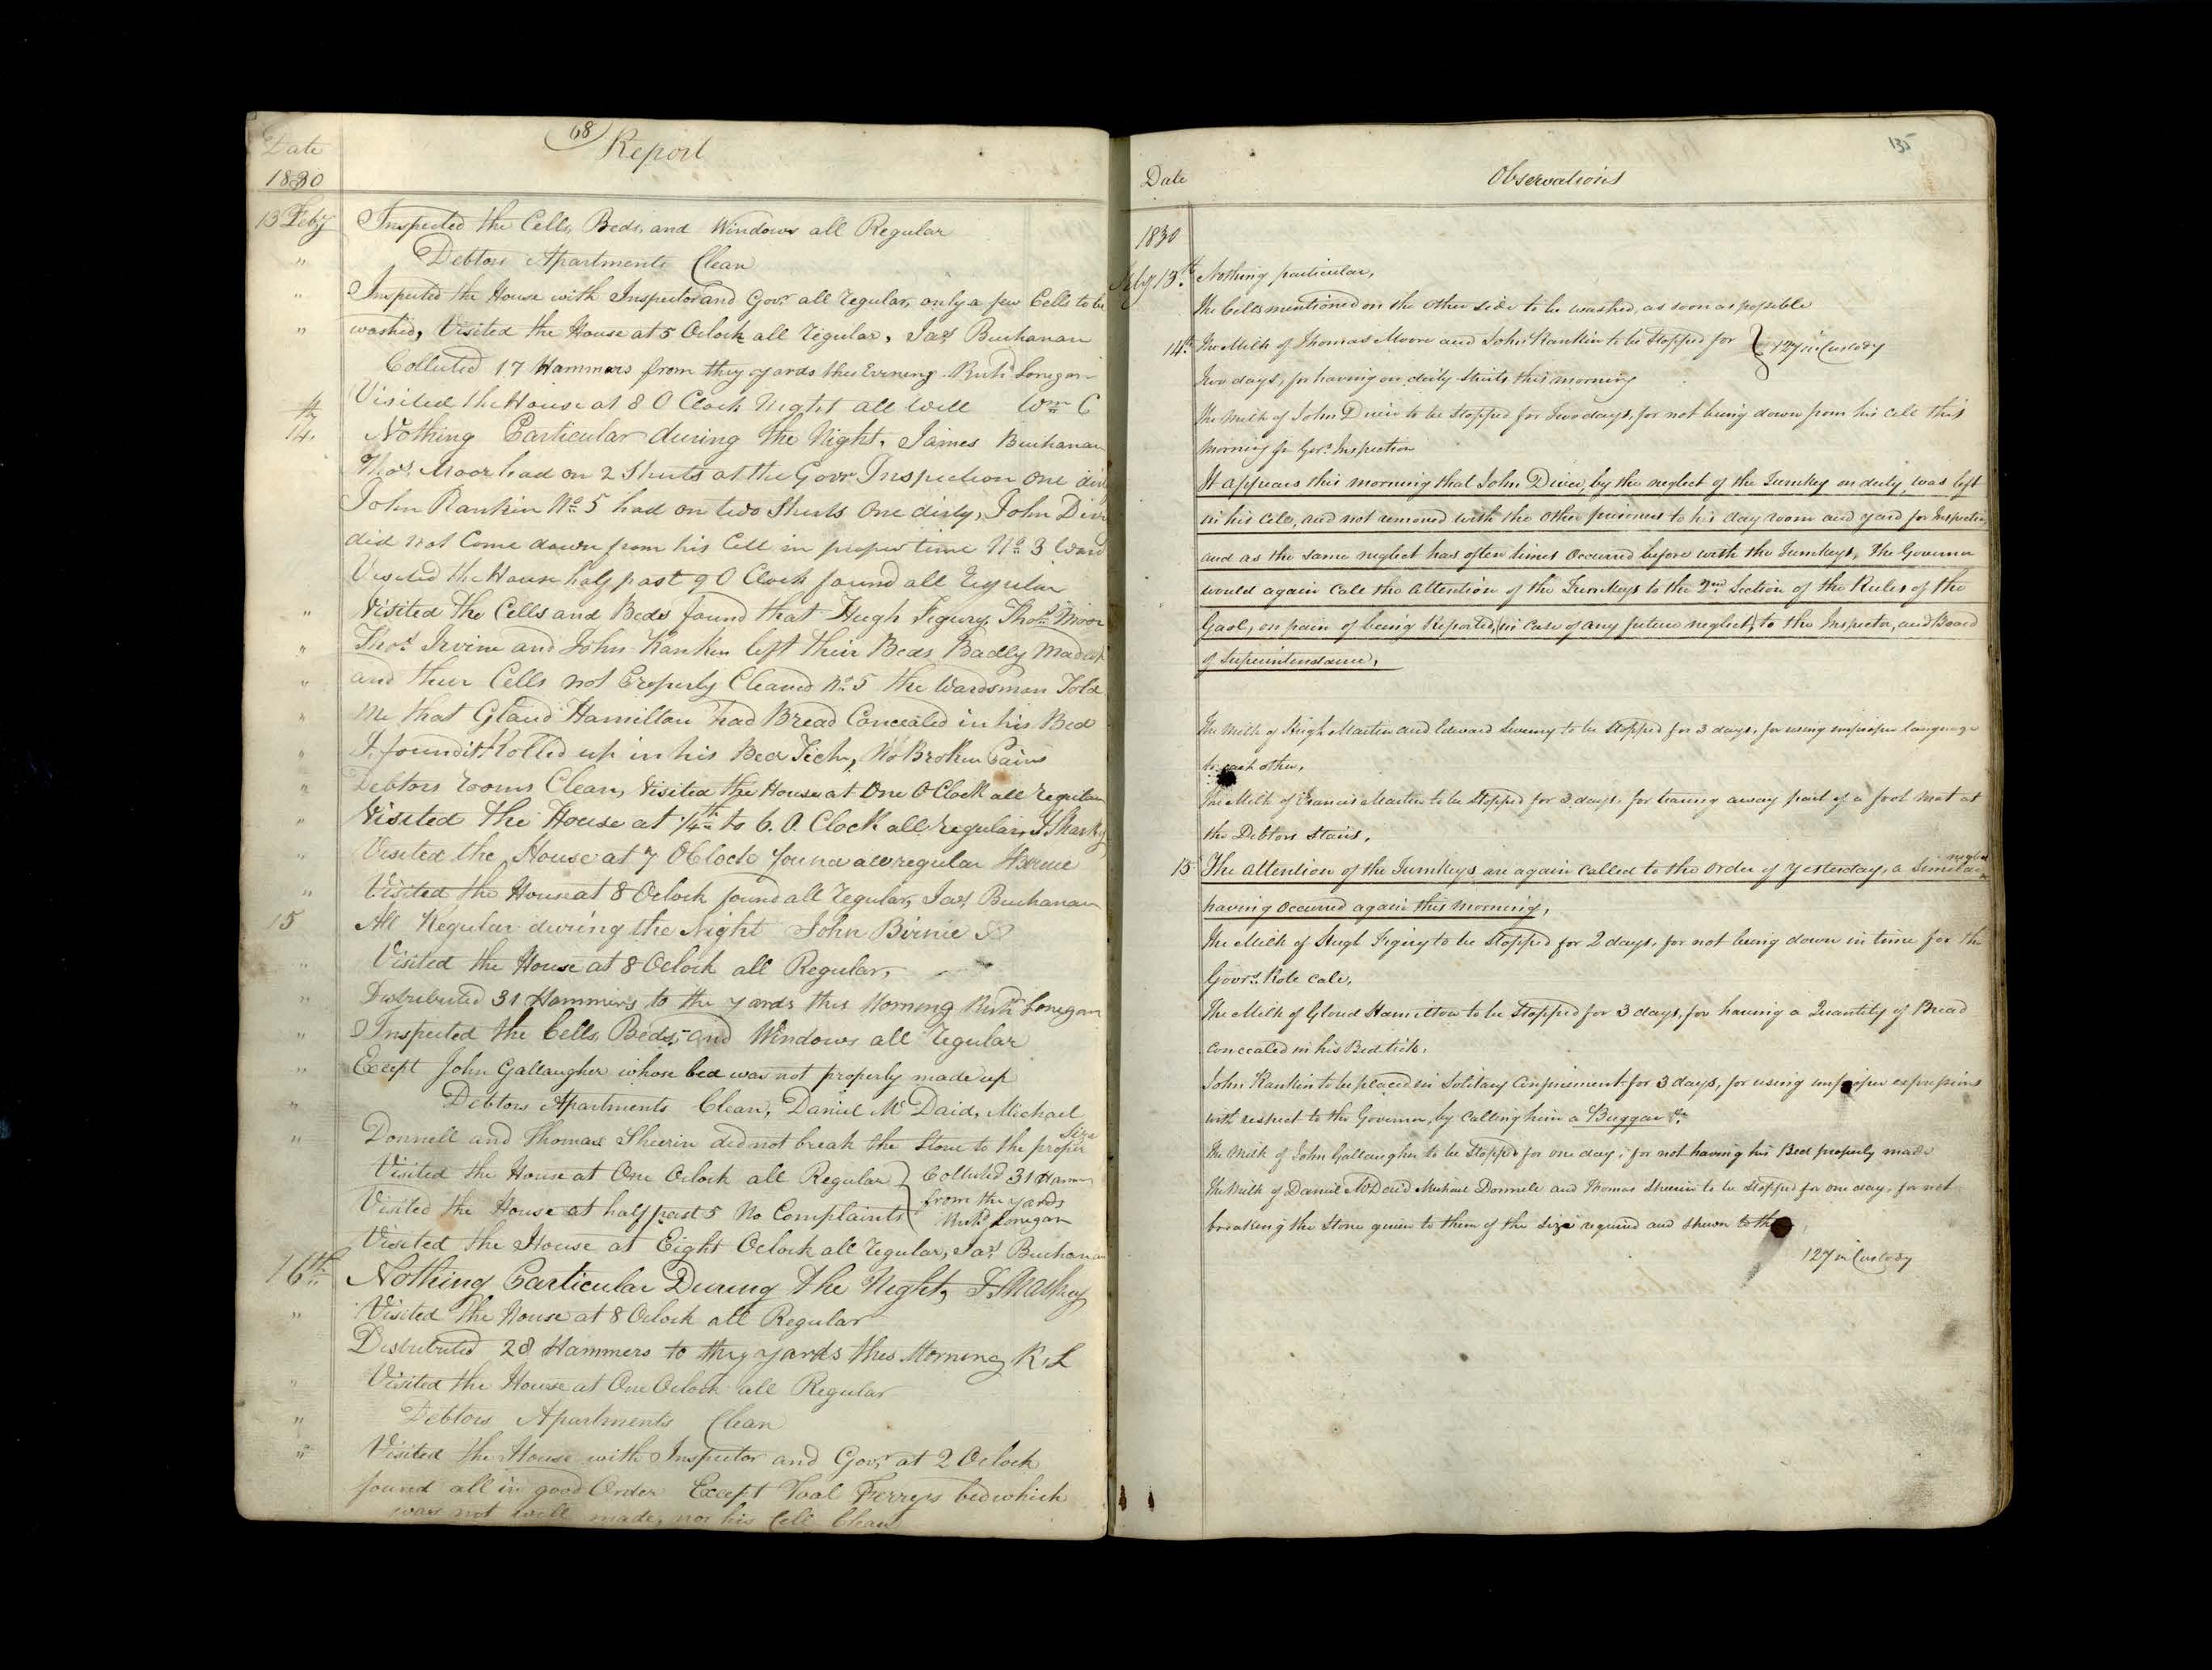 68
Date
Report
1830
13 Feby Inspected the Cells, Beds, and Windows all Regular
" Debtors Apartments Clean
" Inspected the House with Inspector and Govr. all regular, only a few Cells to be
" washed, Visited the House at 5 Oclock all regular, Jas. Buchanan
Collected 17 Hammers from they yards this Evening Richd. Lonegan
Visited the House at 8 O Clock Night all Well Wm C
14th Nothing Particular during the Night, James Buchanan
Thos. Moor had on 2 Shirts at the Govr. Inspection one dirty
John Rankin No. 5 had on two Shirts One dirty, John Diver
did not Come down from his Cell in proper time No. 3 Ward
Visited the House half past 9 O Clock found all regular
" Visited The Cells and Beds found that Hugh Figury, Thos. Moor
" Thos. Irvine and John Rankin left their Beds Badly Made up
" and their Cells not Properly Cleaned No. 5 the Wardsman Told
" Me that Glaud Hamilton had Bread Concealed in his Bed
" I found it Rolled up in his Bed Tick, No Broken Pains
" Debtors rooms Clean, Visited the House at One O Clock all regular
" Visited the House at 1/4th to 6. O. Clock all regular, J Sharkey
" Visited the House at 7 OClock found all regular JBirnie
" Visited the House at 8 Oclock found all regular, Jas. Buchanan
15 All Regular during the Night John Birnie
" Visited the House at 8 Oclock all Regular,
" Distributed 31 Hammers to the yards this Morning Richd. Lonegan
" Inspected the Cells, Beds, and Windows all regular
" Except John Gallaugher whose bed was not properly made up
" Debtors Apartments Clean, Daniel Mc Daid, Michael
" Donnell and Thomas Sheerin did not break the Stone to the proper Size
Visited the House at One Oclock all Regular } Collected 31 Hammers
Visited the House at half past 5 No Complaints } from the yards Richd. Lonegan
Visited the House at Eight Oclock all regular, Jas. Buchanan
16th Nothing Particular During the Night, J. Sharkey
" Visited the House at 8 Oclock all Regular
Distributed 28 Hammers to they yards this Morning R. L
" Visited the House at One Oclock all Regular
" Debtors Apartments Clean
" Visited the House with Inspector and Govr. at 2 Oclock
found all in good Order Except Toal Ferrys bed which
was not well made, nor his Cell Clean
135
Date
Observations
1830
Feby 13th. Nothing particular,
The Cells mentioned on the other side to be washed, as soon as possible
14th. The Milk of Thomas Moore and John Rankin to be Stopped for } 127 in Custody
Two days, for having on dirty Shirts this morning
The Milk of John Diver to be Stopped for Two days, for not being down from his Cell this
Morning for Govr. Inspection
It appears this morning that John Diver, by the neglect of the Turnkey on duty, was left
in his Cell, and not removed with the other prisoners to his day room and yard for Inspection,
and as the same neglect has often times Occurred before with the Turnkeys, the Governor
would again Call the Attention of the Turnkeys to the 2nd. Section of the Rules of the
Gaol, on pain of being Reported, (in Case of any future neglect) to the Inspector, and Board
of Superintendance,
The Milk of Hugh Martin and Edward Sweeny to be Stopped for 3 days, for using improper language
to each other,
The Milk of Francis Martin to be Stopped for 3 days, for tearing away part of a foot Mat at
the Debtors Stairs,
15 The Attention of the Turnkeys are again Called to the Order of Yesterday, a Similar neglect
having Occurred again this Morning,
The Milk of Hugh Figury to be Stopped for 2 days, for not being down in time for the
Govrs. Role Call,
The Milk of Gloud Hamilton to be Stopped for 3 days, for having a Quantity of Bread
concealed in his Bed tick,
John Rankin to be placed in Solitary Confinement for 3 days, for using improper expressions
with respect to the Governor, by Calling him a Buggar &c.
The Milk of John Gallaugher to be Stopped for one day, for not having his Bed properly made
The Milk of Daniel McDaid Michael Donnell and Thomas Sheerin to be Stopped for one day, for not
breaking the Stone given to them of the Size required and shewn to them
127 in Custody